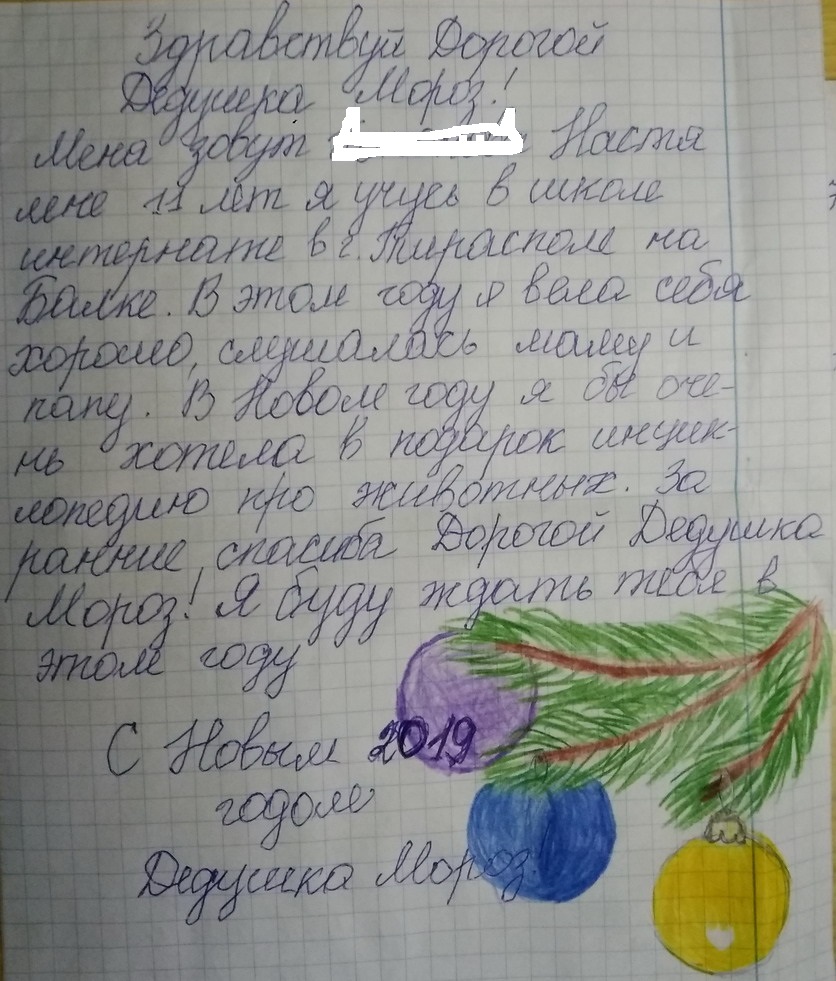 Здравствуй Дорогой
Дедушка Мороз!
Меня зовут Настя
мне 11 лет я учусь в школе
интернате в г. Тирасполе на
Балке. В этом году я вела себя
хорошо, слушалась маму и
папу. В Новом году я бы оче-
нь хотела в подарок инцик-
лопедию про животных. За
ранние, спасиба Дорогой Дедушка
Мороз! Я буду ждать тебя в
этом году
С Новым 2019
годом
Дедушка Мороз!